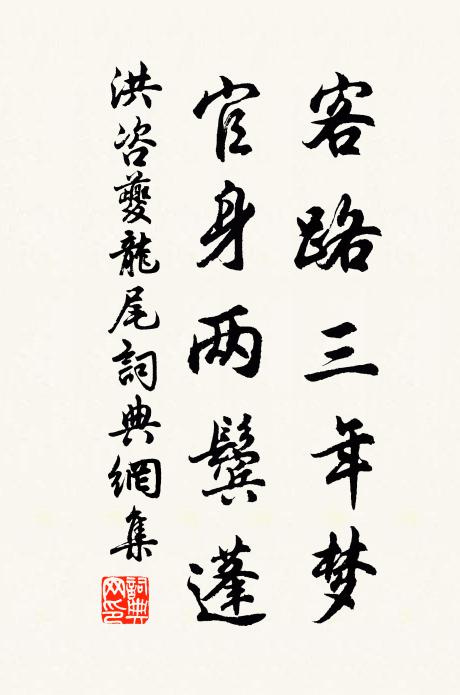 客路三年梦
官身两鬓蓬
洪咨夔龍尾詞典網集
詞典网印